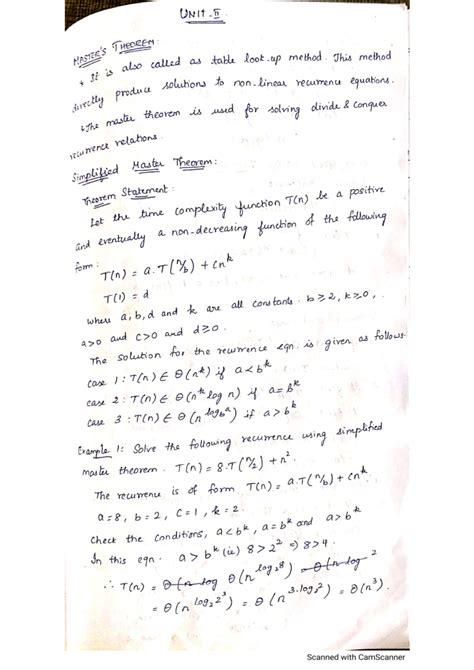 UNIT-II
MASTER'S THEOREM:
* It is also called as table look-up method. This method
directly produce solutions to non-linear recurrence equations.
* The master theorem is used for solving divide & Conquer
recurrence relations.
Simplified Master Theorem:
Theorem Statement:
Let the time complexity function T(n) be a positive
and eventually a non-decreasing function of the following
form:
T(n) = a.T(n/b) + cn^k
T(1) = d
where a, b, d and k are all constants. b≥2, k≥0,
a>0 and c>0 and d≥0.
The solution for the recurrence eqn. is given as follows.
case 1: T(n) ∈ Θ(n^k) if a<b^k
case 2: T(n) ∈ Θ(n^k log n) if a=b^k
case 3: T(n) ∈ Θ(n^log_b a) if a>b^k
Example 1: Solve the following recurrence using simplified
master theorem. T(n) = 8.T(n/2) + n^2.
The recurrence is of form T(n) = a.T(n/b) + cn^k
a=8, b=2, C=1, k=2.
Check the conditions, a<b^k, a=b^k and a>b^k
In this eqn. a>b^k (ie) 8>2^2 ⇒ 8>4.
∴ T(n) = Θ(n^log_2 8)
= Θ(n^log_2 2^3) = Θ(n^3.log_2 2) = Θ(n^3).
Scanned with CamScanner